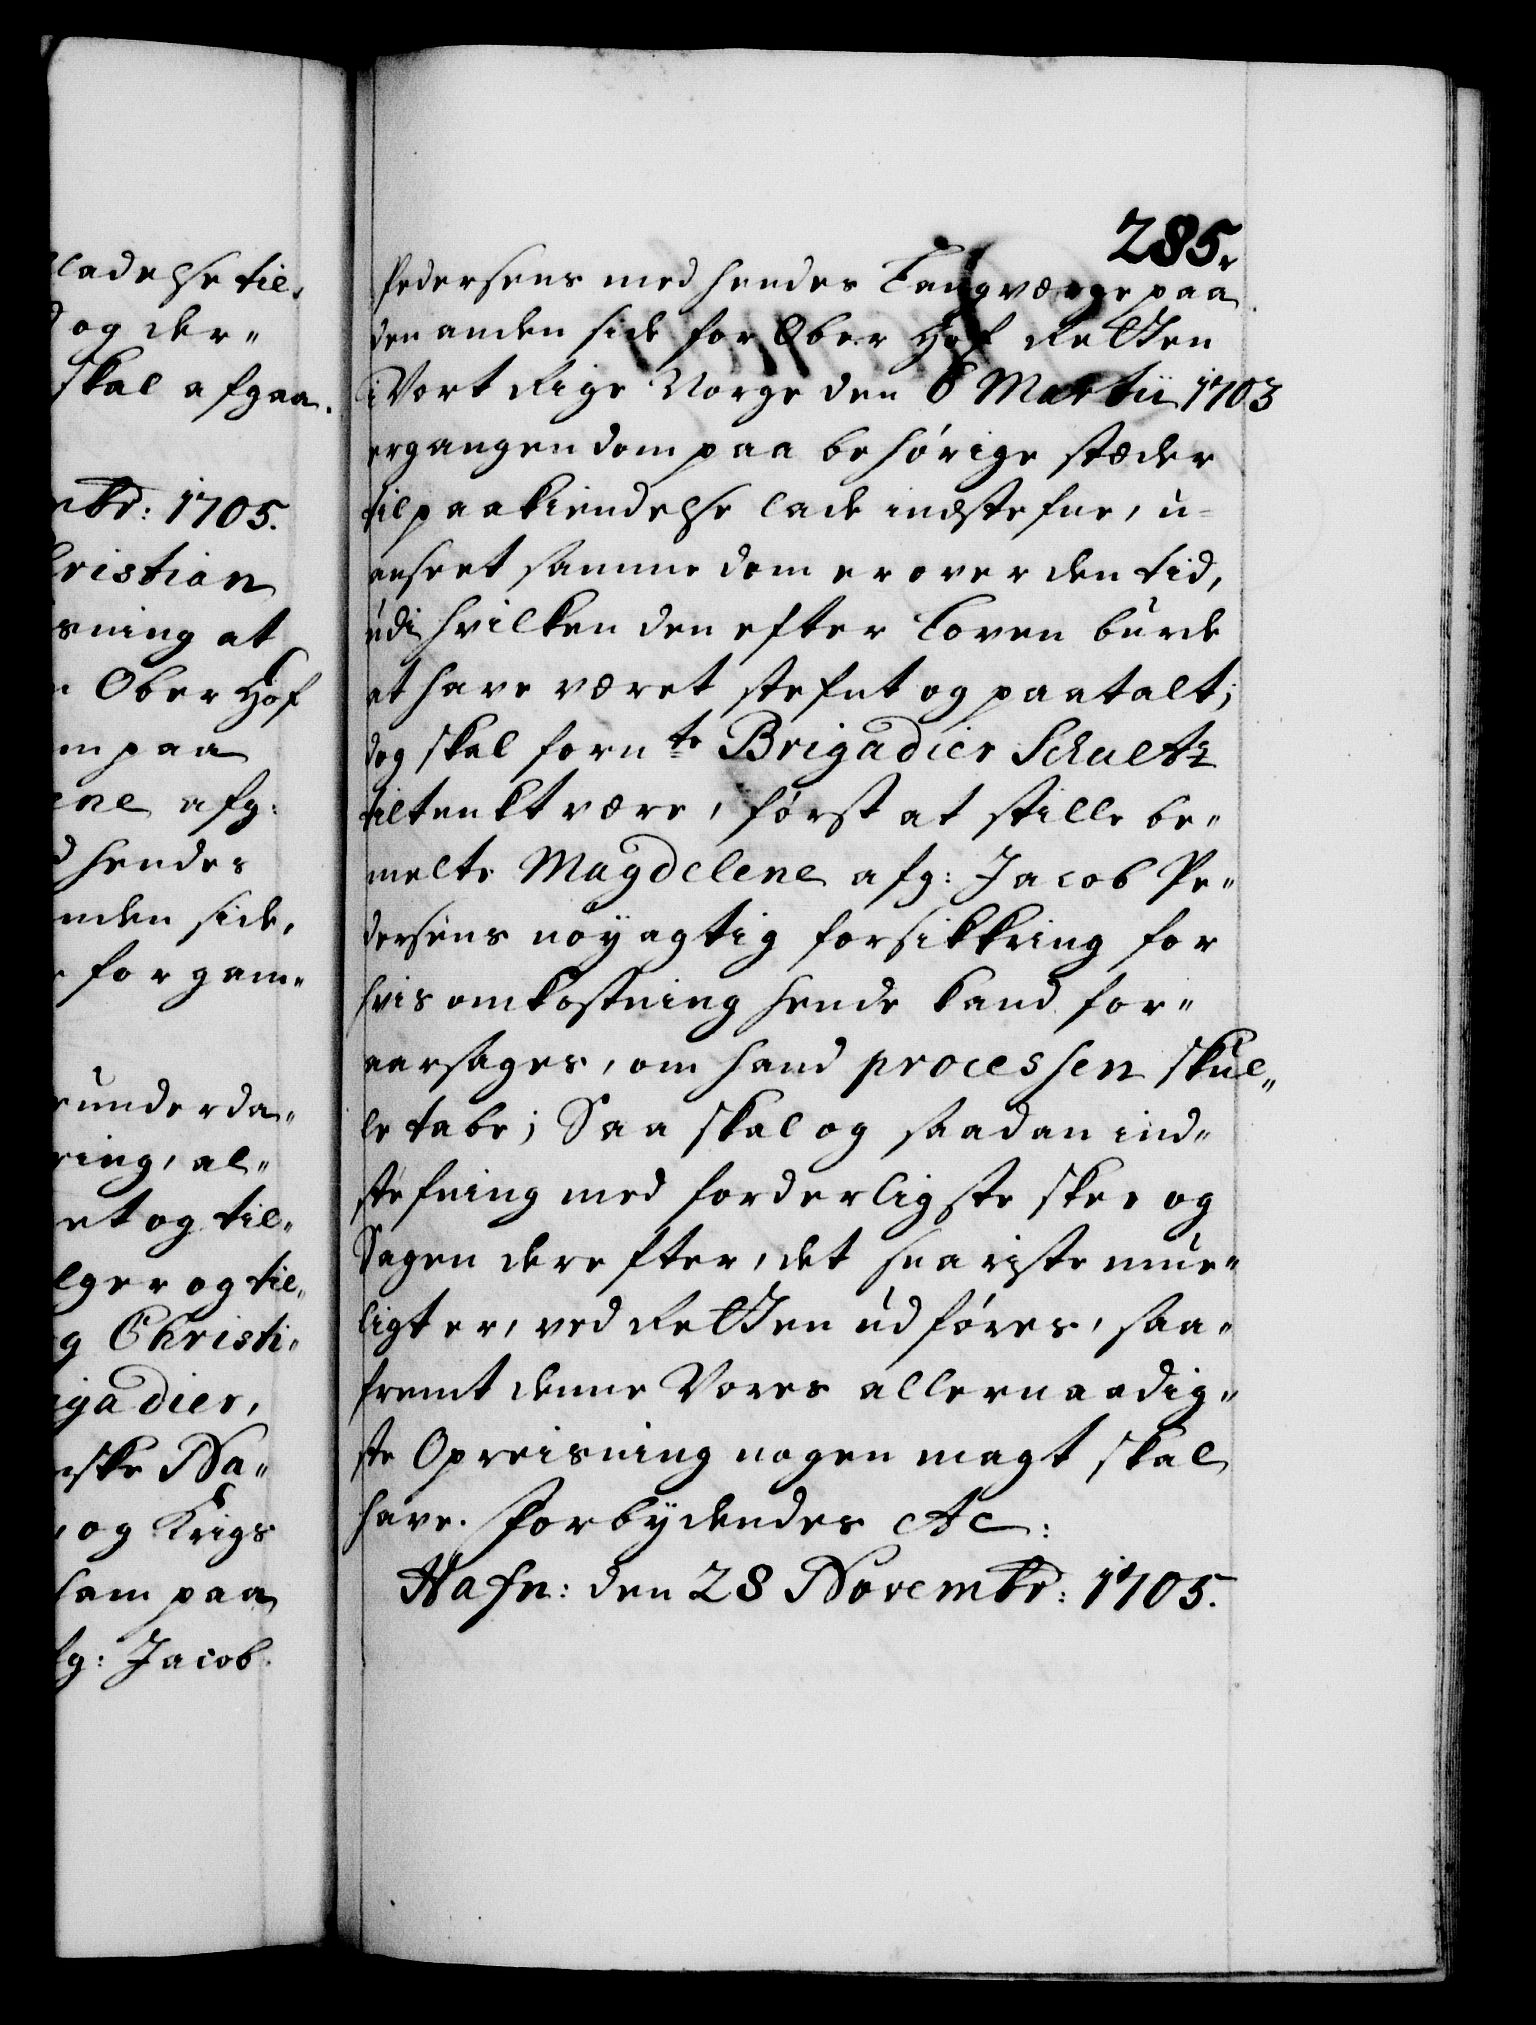 ladelse til„
og der„
skal afgaa.
mbr: 1705.
hristian
sning at
Ober Hof
m paa
ene afg:
d hendes
nden side,
for gam„
underda„
ring, al„
et og til„
lger og til„
g Christi„
igadier,
ske Na„
og Krigs
ham paa
fg: Jacob
285.
Pedersens med hendes Laugværge paa
den anden side for Ober Hof Retten
i Vort Rige Norge den 6 Martii 1703
ergangen dom paa behörige stæder
til paakiendelse lade indstefne, u-
anseet samme dom er over den tid,
udi hvilken den efter Loven burde
at have været stefnt og paatalt;
dog skal fornte Brigadier Schultz
tiltenkt være, först at stille be„
melte Magdelene afg: Jacob Pe„
dersens nöyagtig forsikkring for
hvis omkostning hende kand for„
aarsages, om hand processen skul„
le tabe; Saa skal og saadan ind„
stefning med forderligste skee og
Sagen derefter, det snariste mue„
ligt er, ved Retten udföres, saa„
fremt denne Vores allernaadig„
ste Opreisning nogen magt skal
have. Forbydendes etc:
Hafn: den 28 Novembr: 1705.